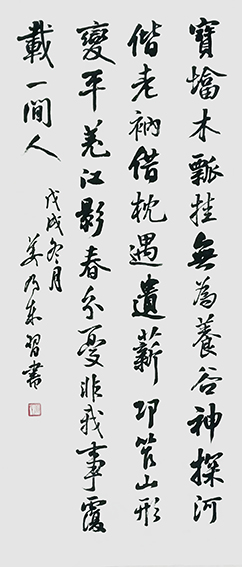 寶墖木瓢挂無為養谷神探河
偕老衲借枕遇遺薪邛筰山形
變平羌江影春分憂非我事霞
載一閒人
戊戌冬月
姜乃東習書